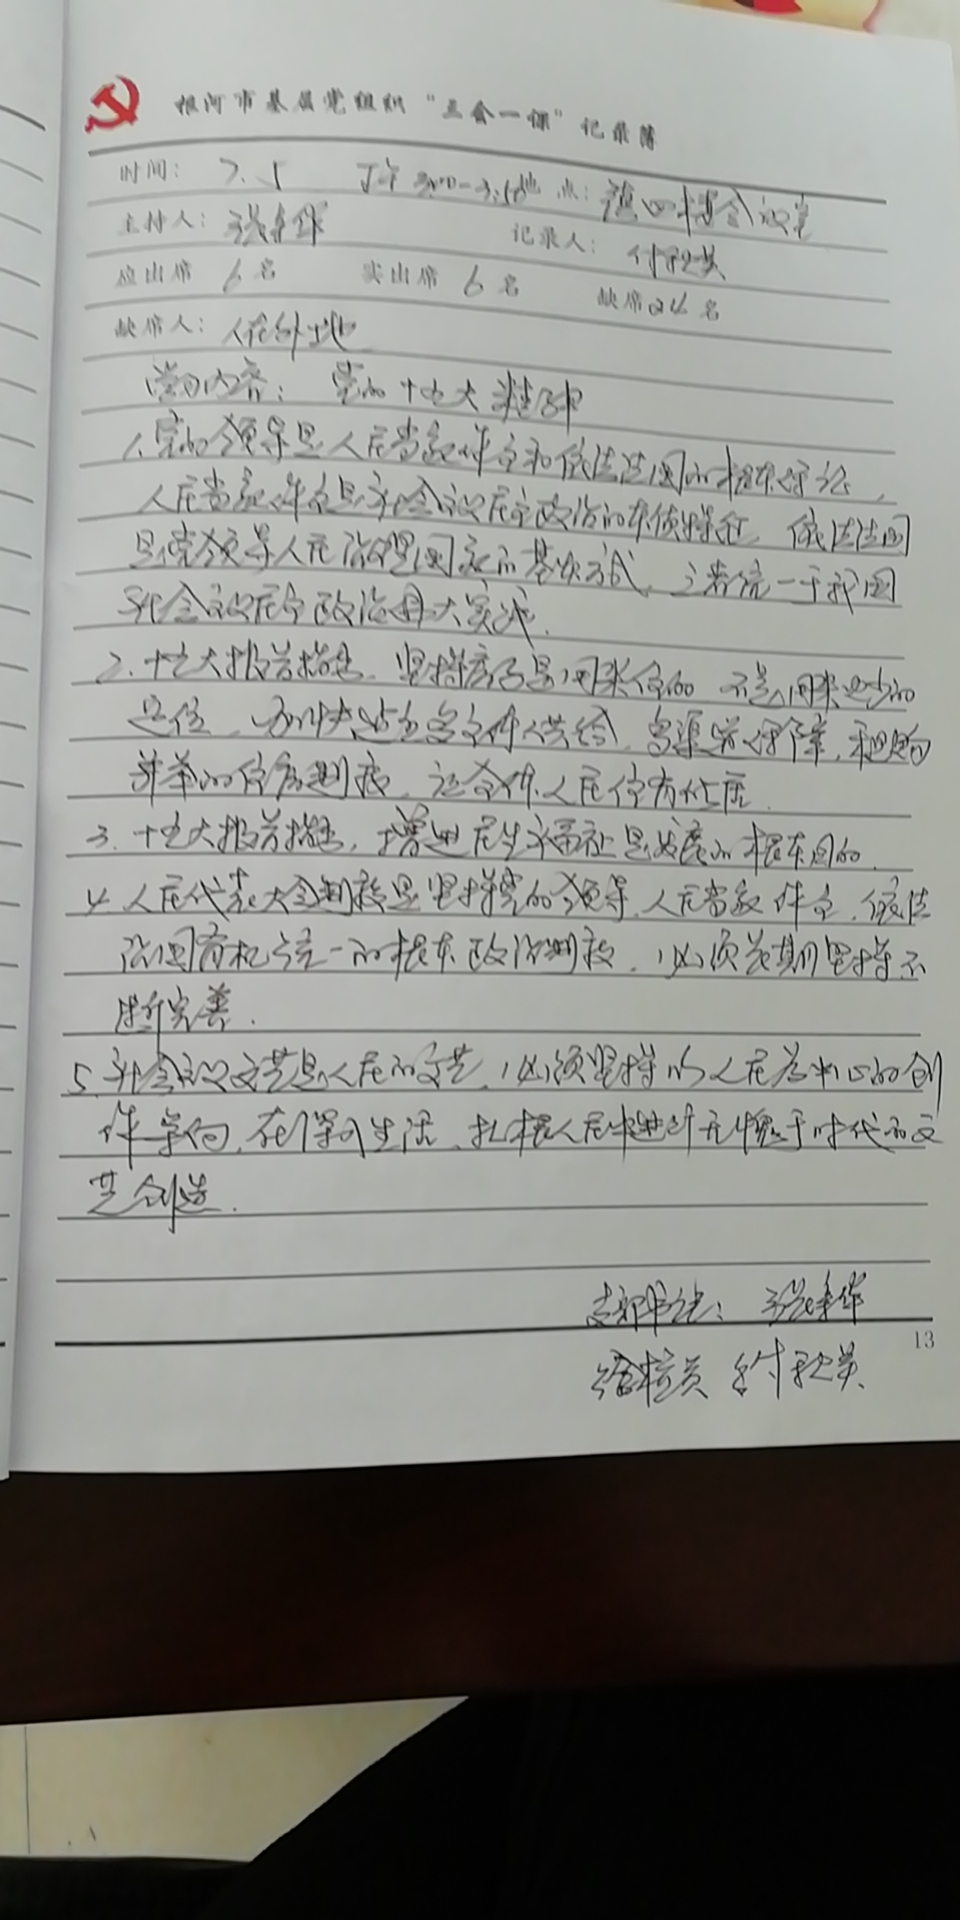 根河市基层党组织“三会一课”记录簿
时间： 7.5 下午3:00-3:50 地点： 镇四楼会议室
主持人： 记录人： 付
应出席 6 名 实出席 6 名 缺席 名
缺席人： 外地
学习内容： 党的十九大精神
1.党的领导是人民当家作主和依法治国的根本保证，
人民当家作主是社会主义民主政治的本质特征，依法治国
是党领导人民治理国家的基本方式，三者统一于我国
社会主义民主政治伟大实践.
2.十九大报告指出，坚持房子是用来住的，不是用来炒的
定位，加快建立多主体供给，多渠道保障，租购
并举的住房制度，让全体人民住有所居.
3.十九大报告指出，增进民生福祉是发展的根本目的.
4.人民代表大会制度是坚持党的领导，人民当家作主，依法
治国有机统一的根本政治制度，必须长期坚持不
断完善.
5.社会主义文艺是人民的文艺，必须坚持以人民为中心的创
作导向，在深入生活，扎根人民中进行无愧于时代的文
艺创造.
支部书记：
13